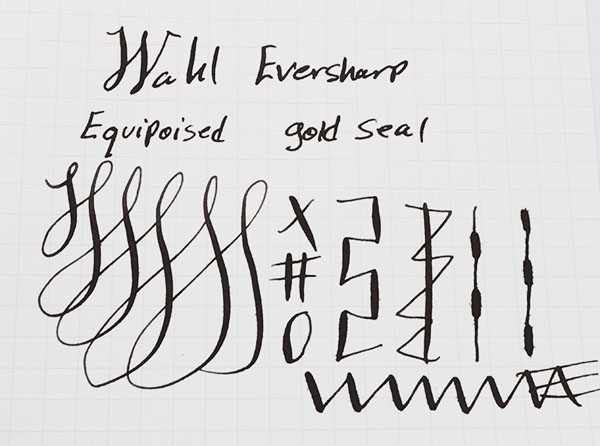 Wahl Eversharp
Equipoised gold seal
X
#
O